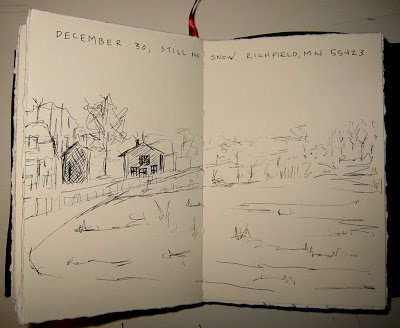 DECEMBER 30, STILL NO SNOW. RICHFIELD, MN 55423